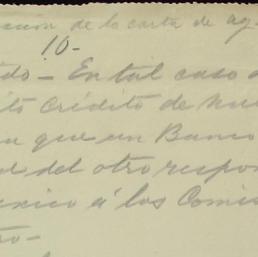 de la carta de ag
10-
do- En tal caso
ito crédito de nue
que un Banco
del otro respon
xico á los Comis
ro-